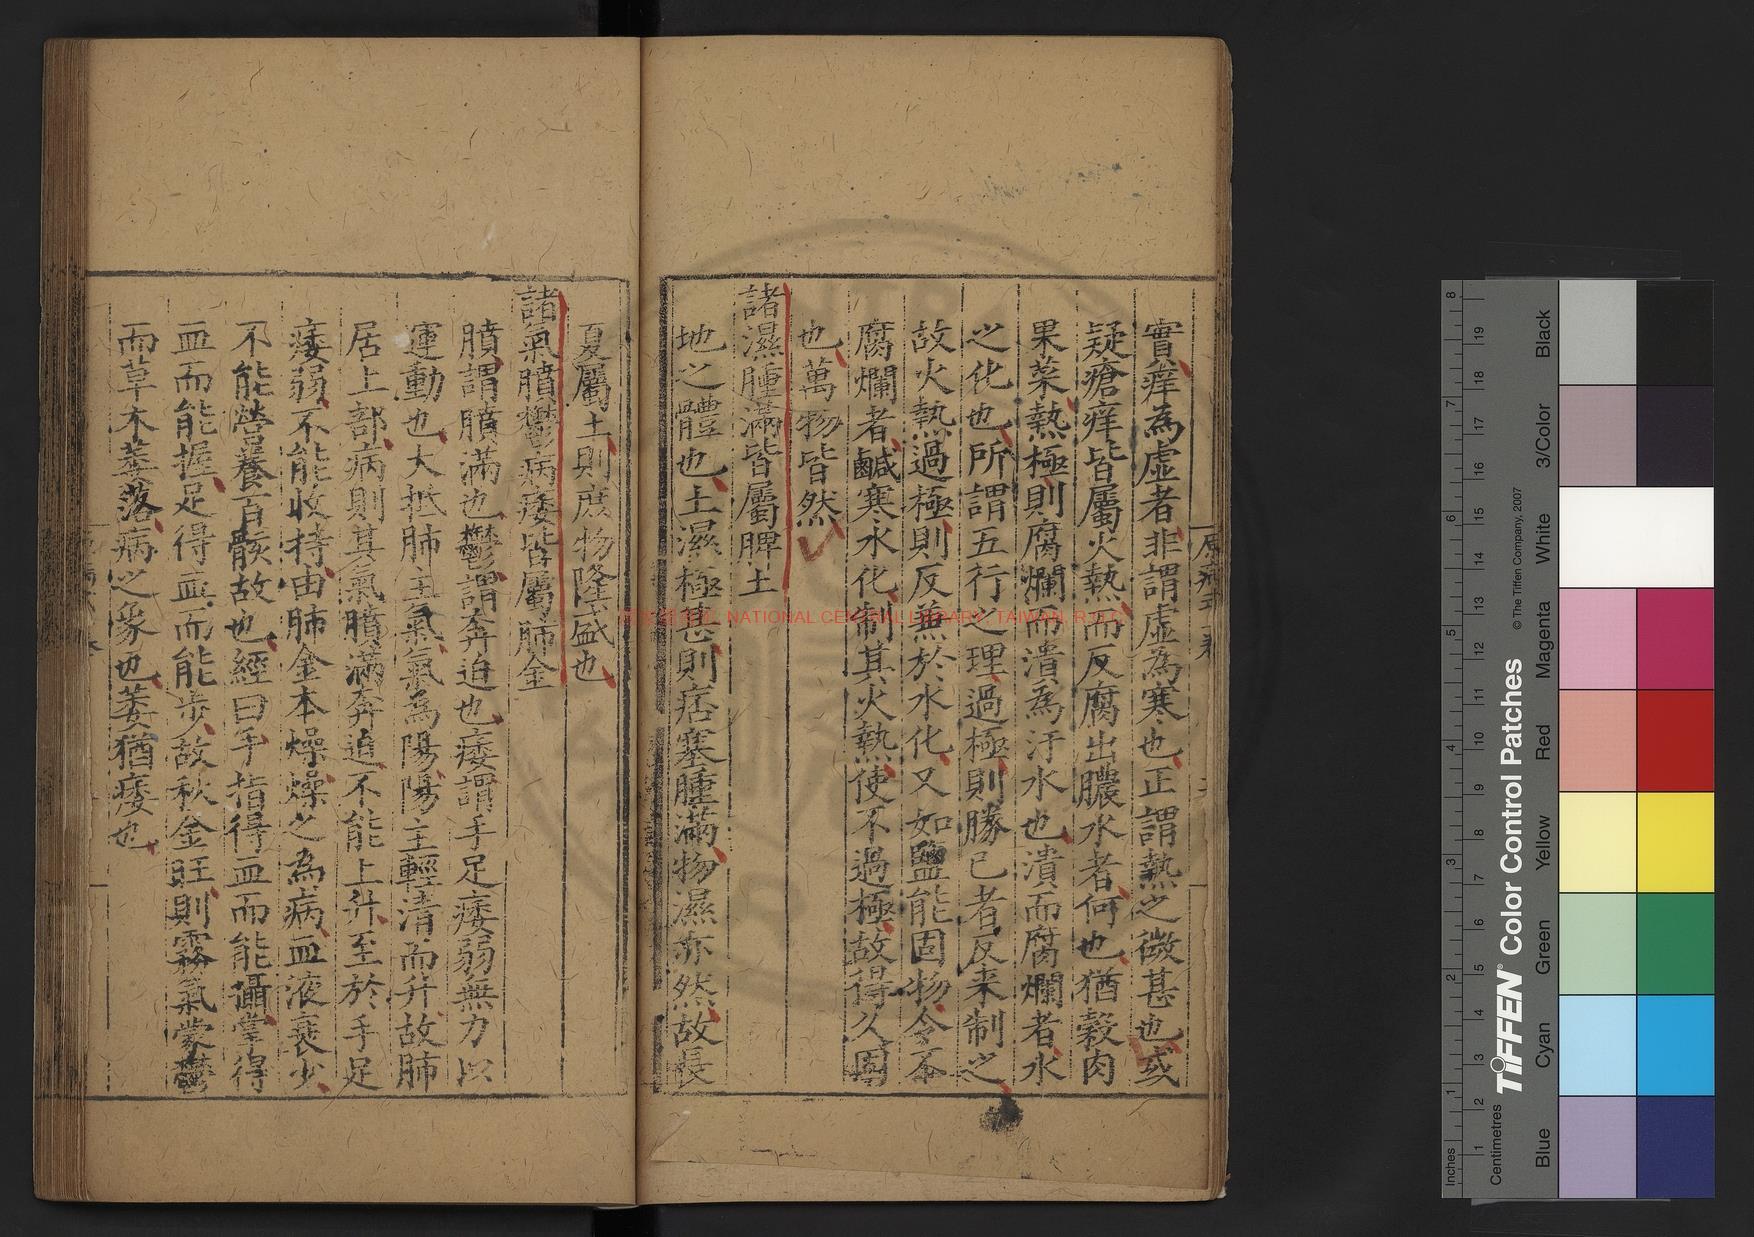 實痒為虛者非謂虛為寒也正謂熱之微甚也或
疑瘡痒皆屬火熱而反腐出膿水者何也猶穀肉
果菜熱極則腐爛而潰為汙水也潰而腐爛者水
之化也所謂五行之理過極則勝已者反来制之
故火熱過極則反兼於水化又如鹽能固物令不
腐爛者鹹寒水化制其火熱使不過極故得久固
也萬物皆然
諸濕腫滿皆屬脾土
地之體也土濕極甚則痞塞腫滿物濕亦然故長
夏屬土則庶物隆盛也
諸氣膹鬱病痿皆屬肺金
膹謂膹滿也鬱謂奔迫也痿謂手足痿弱無力以
運動也大抵肺主氣氣為陽陽主輕清而升故肺
居上部病則其氣膹滿奔迫不能上升至於手足
痿弱不能收持由肺金本燥燥之為病血液衰少
不能營養百骸故也經曰手指得血而能攝掌得
血而能握足得血而能步故秋金旺則霧氣蒙鬱
而草木萎落病之象也萎猶痿也
NATIONAL CENTRAL LIBRARY, TAIWAN, R.O.C
Inches
Centimetres
TIFFEN® Color Control Patches
© The Tiffen Company, 2007
Blue
Cyan
Green
Yellow
Red
Magenta
White
3/Color
Black